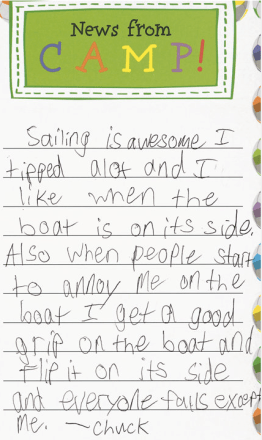 News from
CAMP!
Sailing is awesome I
tipped alot and I
like when the
boat is on its side.
Also when people start
to annoy me on the
boat I get a good
grip on the boat and
flip it on its side
and everyone falls except
me. —Chuck